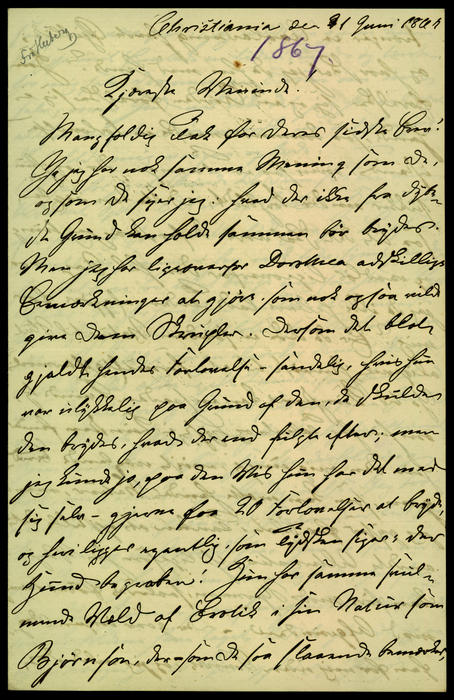 Christiania den 21 Juni 1867
1867.
Kjæreste Veninde.
Mangfoldig Tak for Deres sidste Brev!
Ja jeg har nok samme Mening som De,
og som De siger jeg: hvad der ikke fra dybe-
ste Grund kan holde sammen bør brydes.
Men jeg har ligeoverfor Dorothea adskillige
Bemærkninger at gjøre som nok ogsaa vilde
give Dem Skrupler. Dersom det blot
gjaldt hendes Forlovelse – sandelig, hvis hun
var ulykkelig paa Grund af den, da skulde
den brydes, hvad der end fulgte efter; men
jeg kunde jo, paa den Vis hun har det med
sig selv – gjerne faa 20 Forlovelser at bryde,
og hvor ligger egentlig, som Tydsken siger: der
Hund begraben? Hun har samme
Væld af Erotik i sin Natur som
Björnson, der – som De saa slaaende bemærker,